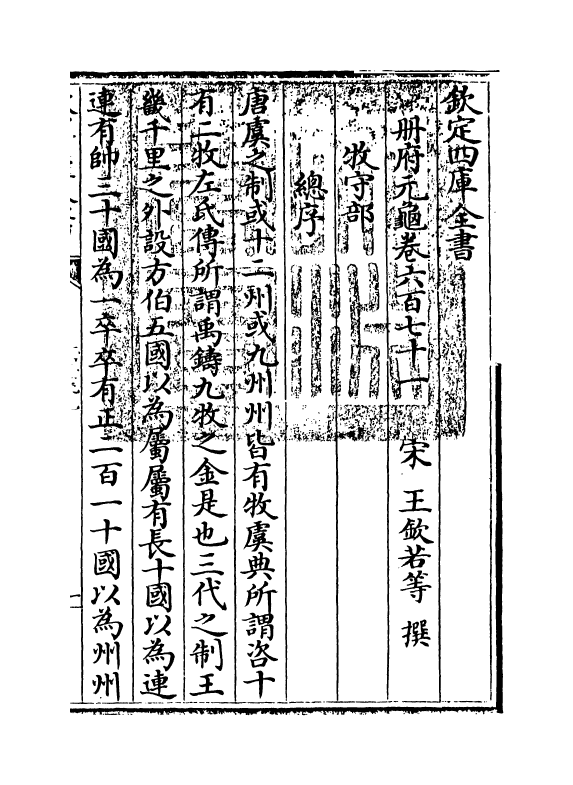 欽定四庫全書
冊府元龜卷六百七十一　宋　王欽若等　撰
牧守部
總序
唐虞之制或十二州或九州州皆有牧虞典所謂咨十
有二牧左氏傳所謂禹鑄九牧之金是也三代之制王
畿千里之外設方伯五國以為屬屬有長十國以為連
連有帥三十國為一卒卒有正二百一十國以為州州